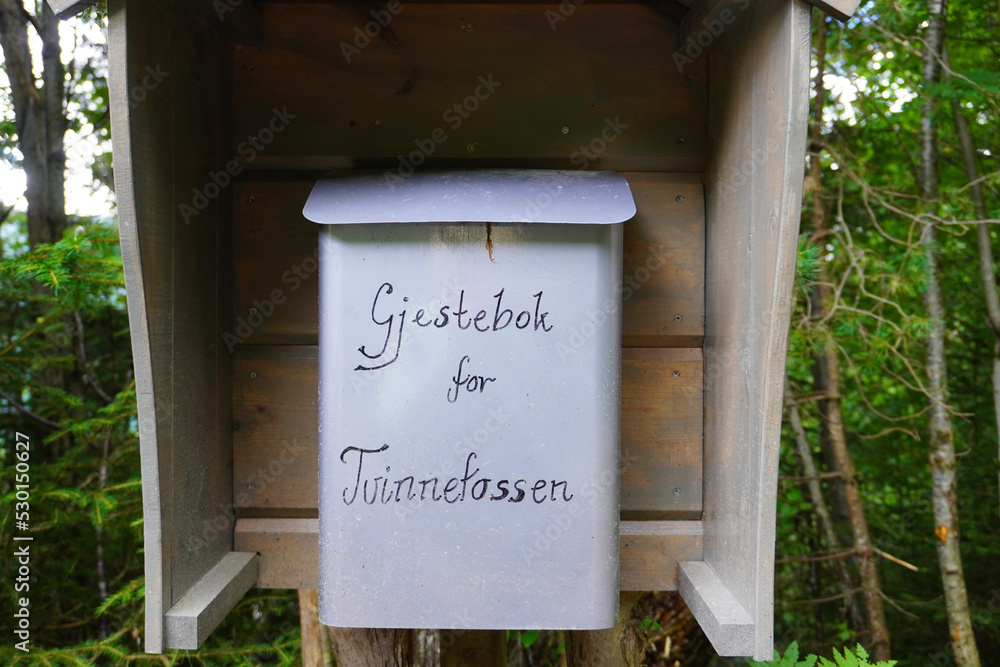 Gjestebok
for
Tvinnefossen
Adobe Stock | #530150627